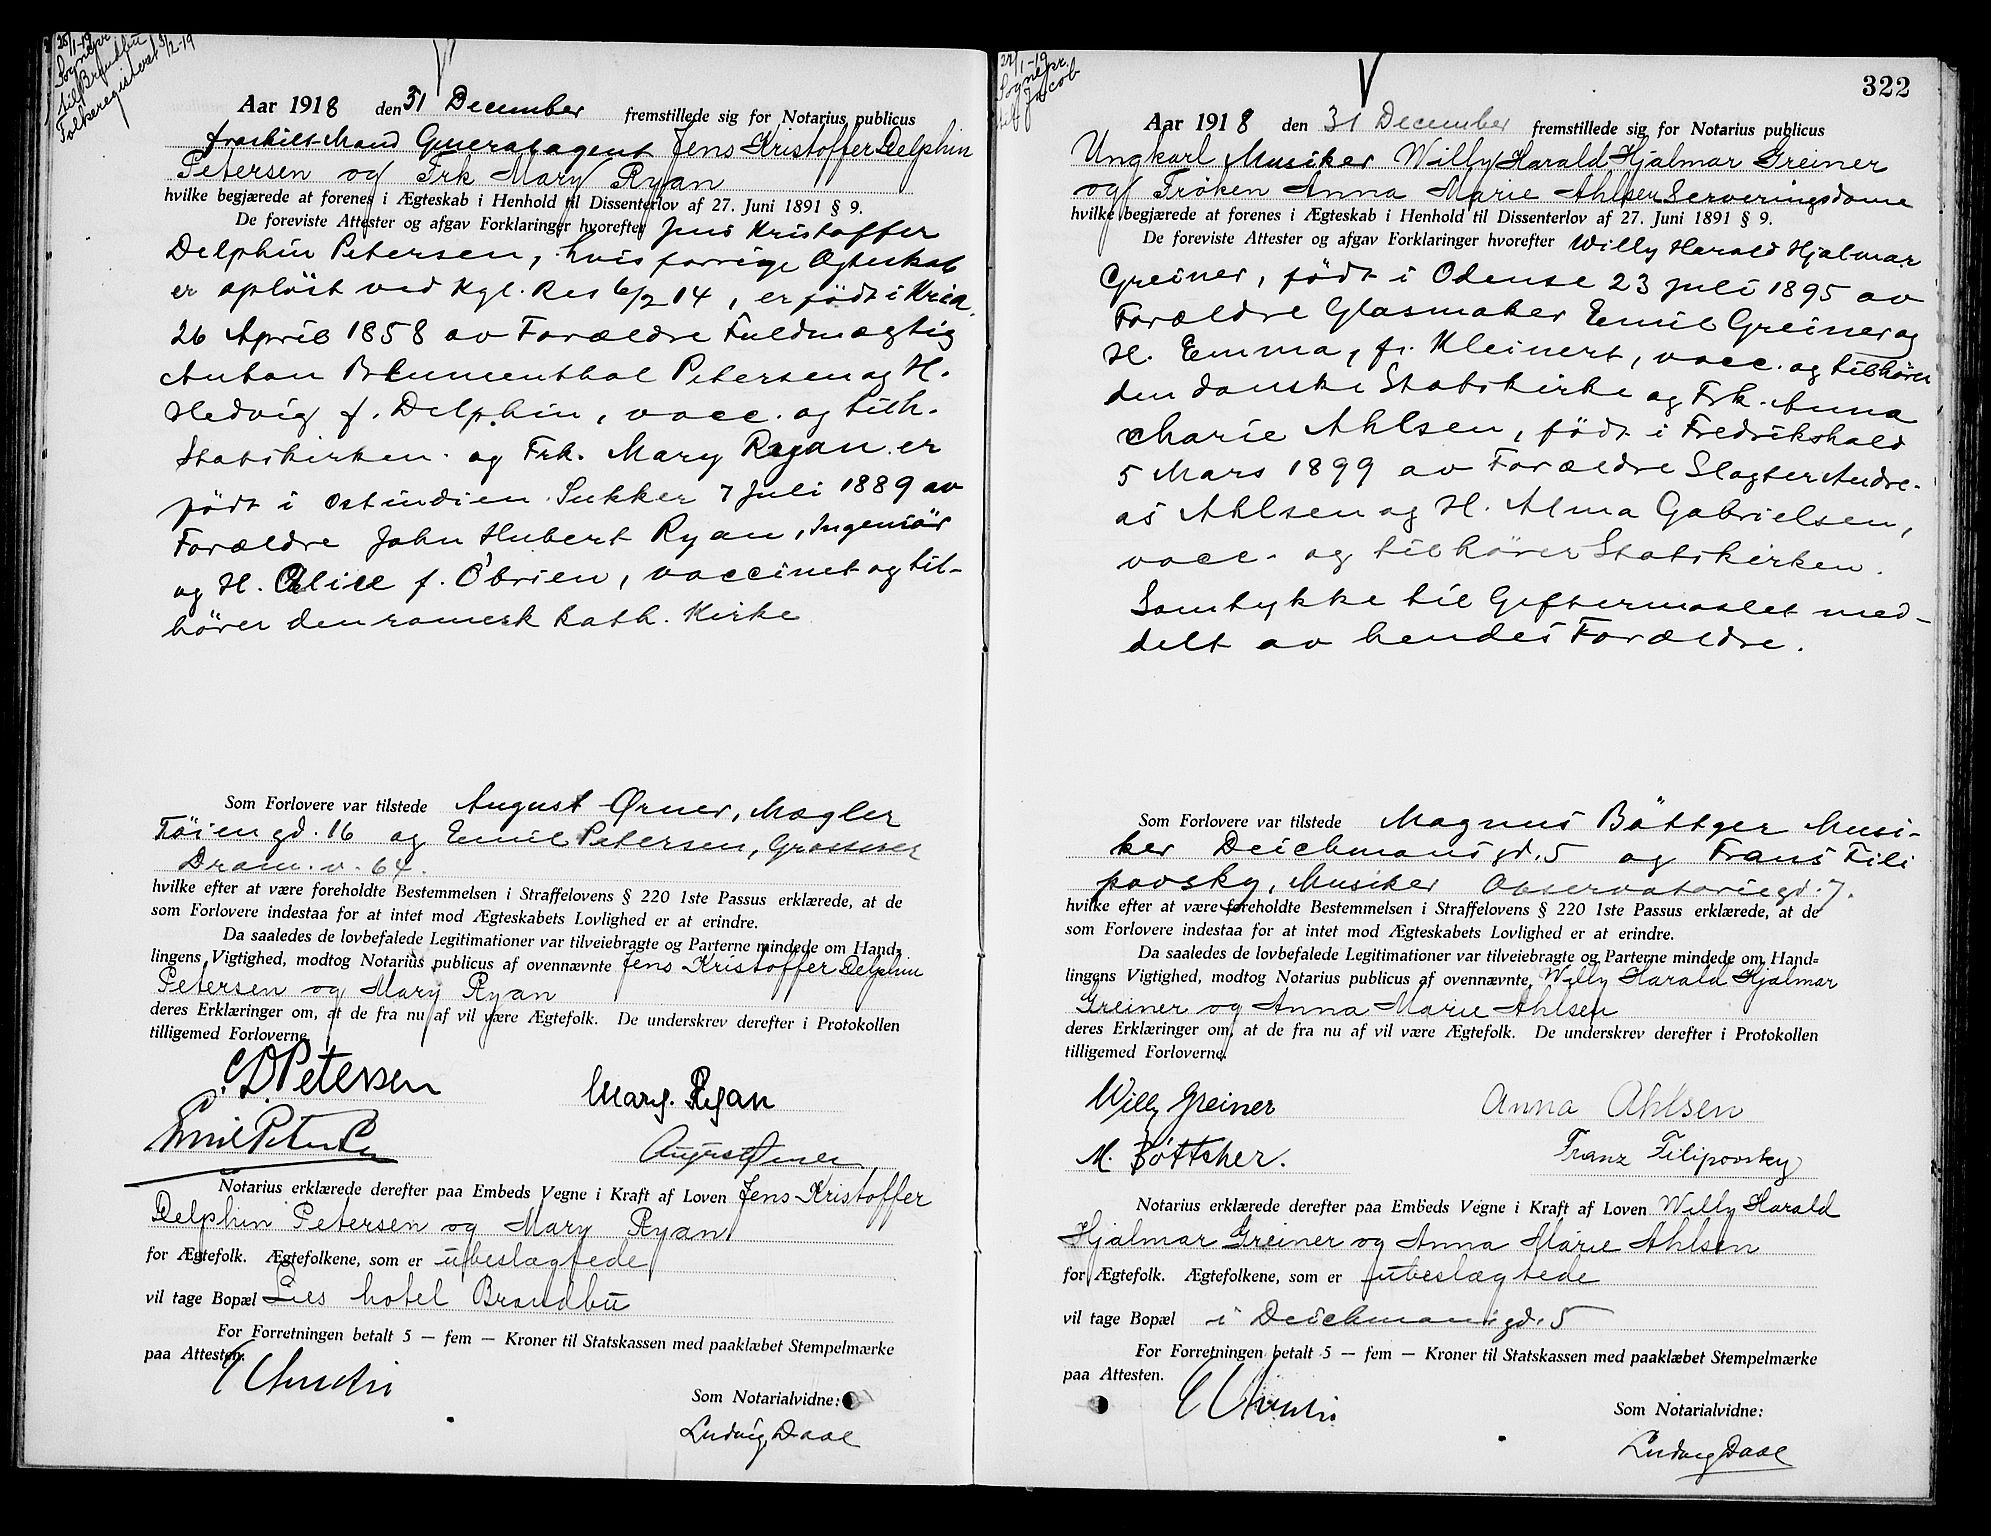 25/1-19
Sognepr.
til Brandbu
Folkeregisteret 3/2-19
Aar 1918 den 31 December fremstillede sig for Notarius publicus
fraskilt Mand Generalagent Jens Kristoffer Delphin
Petersen og Frk Mary Ryan
hvilke begjærede at forenes i Ægteskab i Henhold til Dissenterlov af 27. Juni 1891 § 9.
De foreviste Attester og afgav Forklaringer hvorefter Jens Kristoffer
Delphin Petersen, hvis forrige Ægteskab
er opløst ved Kgl. Res 6/2 14, er født i Kria.
26 April 1858 av Forældre Fuldmægtig
Anton Blumenthal Petersen og H.
Hedvig f. Delphin, vacc. og tilh.
Statskirken. og Frk. Mary Ryan er
født i Ostindien Sukker 7 Juli 1889 av
Forældre John Hubert Ryan, Ingeniør
og H. Alice f. O'brien, vaccinet og til-
hører den romersk kath. Kirke
Som Forlovere var tilstede August Ørner, Mægler
Tøiengd. 16 og Emil Petersen, Grosserer
Dram. v. 64.
hvilke efter at være foreholdte Bestemmelsen i Straffelovens § 220 1ste Passus erklærede, at de
som Forlovere indestaa for at intet mod Ægteskabets Lovlighed er at erindre.
Da saaledes de lovbefalede Legitimationer var tilveiebragte og Parterne mindede om Hand-
lingens Vigtighed, modtog Notarius publicus af ovennævnte Jens Kristoffer Delphin
Petersen og Mary Ryan
deres Erklæringer om, at de fra nu af vil være Ægtefolk. De underskrev derefter i Protokollen
tilligemed Forloverne.
D Petersen Mary. Ryan
Emil Petersen August Ørner
Notarius erklærede derefter paa Embeds Vegne i Kraft af Loven Jens Kristoffer
Delphin Petersen og Mary Ryan
for Ægtefolk. Ægtefolkene, som er ubeslægtede
vil tage Bopæl Lies hotel Brandbu
For Forretningen betalt 5 — fem — Kroner til Statskassen med paaklæbet Stempelmærke
paa Attesten.
Som Notarialvidne:
Ludvig Daae
322
27/1-19
Sognepr.
til Jacob
Aar 1918 den 31 December fremstillede sig for Notarius publicus
Ungkarl Musiker Willy Harald Hjalmar Greiner
og Frøken Anna Marie Ahlsen Serveringsdame
hvilke begjærede at forenes i Ægteskab i Henhold til Dissenterlov af 27. Juni 1891 § 9.
De foreviste Attester og afgav Forklaringer hvorefter Willy Harald Hjalmar
Greiner, født i Odense 23 juli 1895 av
Forældre Glasmaker Emil Greiner og
H. Emma, f. Kleinert, vacc. og tilhører
den danske Statskirke og Frk. Anna
Marie Ahlsen, født i Fredrikshald
5 Mars 1899 av Forældre Slagter Andre-
as Ahlsen og H. Alma Gabrielsen,
vacc. og tilhører Statskirken.
Samtykke til Giftermaalet med-
delt av hendes Forældre.
Som Forlovere var tilstede Magnus Böttger Musi-
ker Deichmansgd. 5 og Frans Fili
povsky, Musiker Observatoriegd. 7.
hvilke efter at være foreholdte Bestemmelsen i Straffelovens § 220 1ste Passus erklærede, at de
som Forlovere indestaa for at intet mod Ægteskabets Lovlighed er at erindre.
Da saaledes de lovbefalede Legitimationer var tilveiebragte og Parterne mindede om Hand-
lingens Vigtighed, modtog Notarius publicus af ovennævnte Willy Harald Hjalmar
Greiner og Anna Marie Ahlsen
deres Erklæringer om, at de fra nu af vil være Ægtefolk. De underskrev derefter i Protokollen
tilligemed Forloverne.
Willy Greiner Anna Ahlsen
M. Böttcher. Franz Filipovsky
Notarius erklærede derefter paa Embeds Vegne i Kraft af Loven Willy Harald
Hjalmar Greiner og Anna Marie Ahlsen
for Ægtefolk. Ægtefolkene, som er ubeslægtede
vil tage Bopæl i Deichmansgd. 5
For Forretningen betalt 5 — fem — Kroner til Statskassen med paaklæbet Stempelmærke
paa Attesten.
Som Notarialvidne:
Ludvig Daae